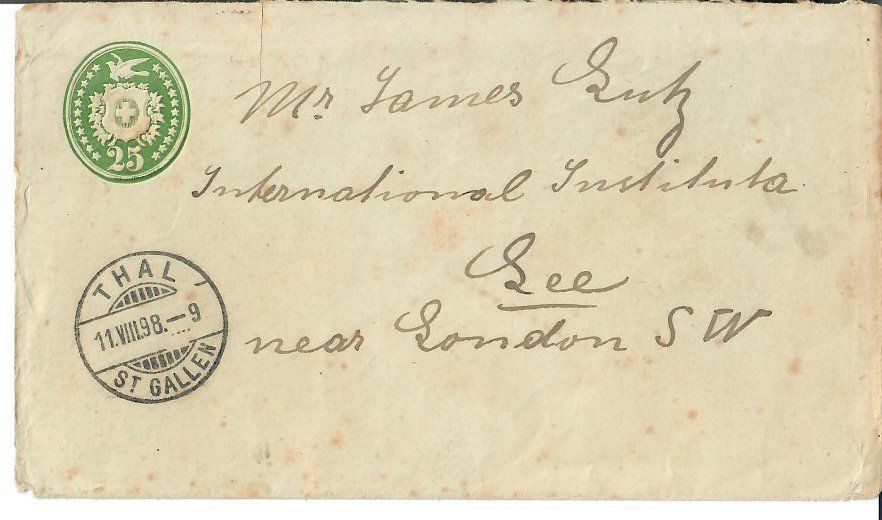 25
Mr. James Lutz
International Instituta
Lee
near London S W
THAL
11.VIII.98.-9
ST GALLEN